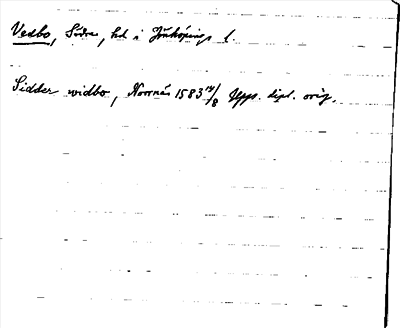 Vedbo, Södra, hd i Jönköpings l.
Sidder widbo, Norrnäs 1583 14/8 Upps. dipl. orig.